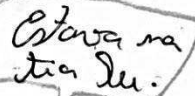 Estava na
tia Lu.